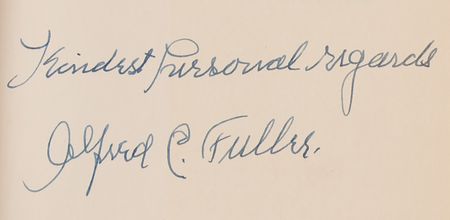 Kindest Personal regards
Alfred C. Fuller.